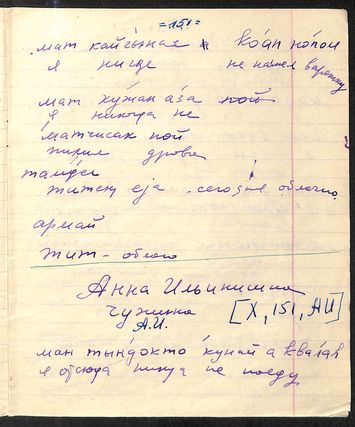 =151=
мат кайгынан коап нопон
я нигде не нашел варежку
мат кужан аза пой
я никогда не
матчисак пой
пирил дрова
тамдел
титен eja - сегодня облачно
армай
тит - облако
Анна Ильинична
Чужина
А.И.
[X, 151, АИ]
ман тындокто кунай а квалав
я отсюда никуда не поеду